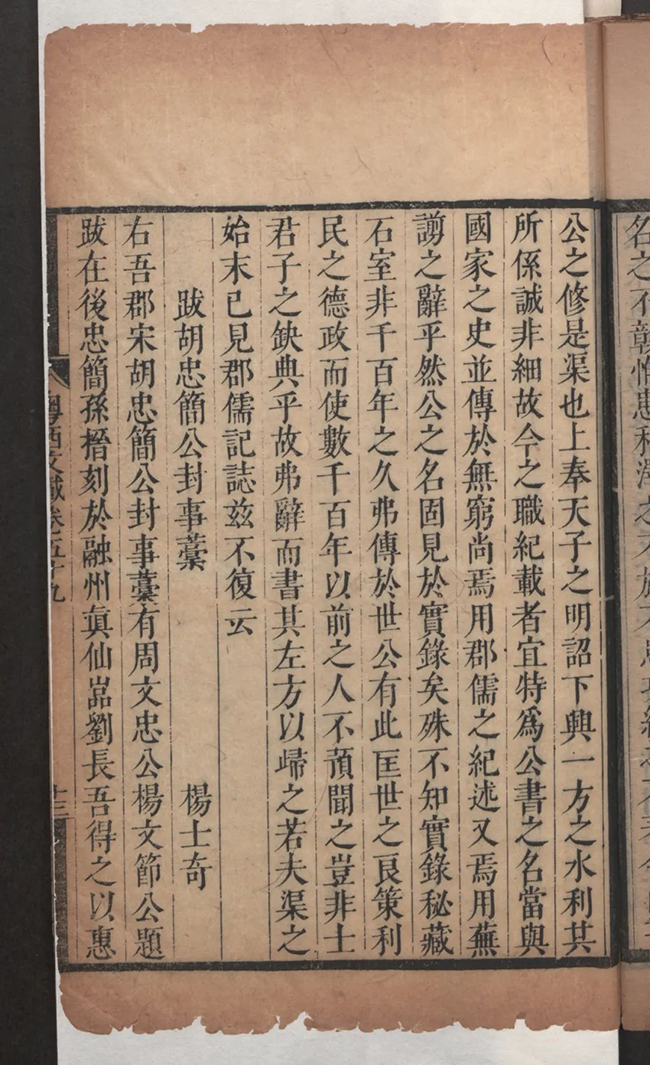 公之修是渠也上奉天子之明詔下興一方之水利其
所係誠非細故今之職紀載者宜特爲公書之名當與
國家之史並傳於無窮尚焉用郡儒之紀述又焉用蕪
謭之辭乎然公之名固見於實錄矣殊不知實錄秘藏
石室非千百年之久弗傳於世公有此匡世之良策利
民之德政而使數千百年以前之人不預聞之豈非士
君子之缺典乎故弗辭而書其左方以歸之若夫渠之
始末已見郡儒記誌茲不復云
跋胡忠簡公封事藁 楊士奇
右吾郡宋胡忠簡公封事藁有周文忠公楊文節公題
跋在後忠簡孫榗刻於融州眞仙嵓劉長吾得之以惠
粵西文載卷之五十九 十三